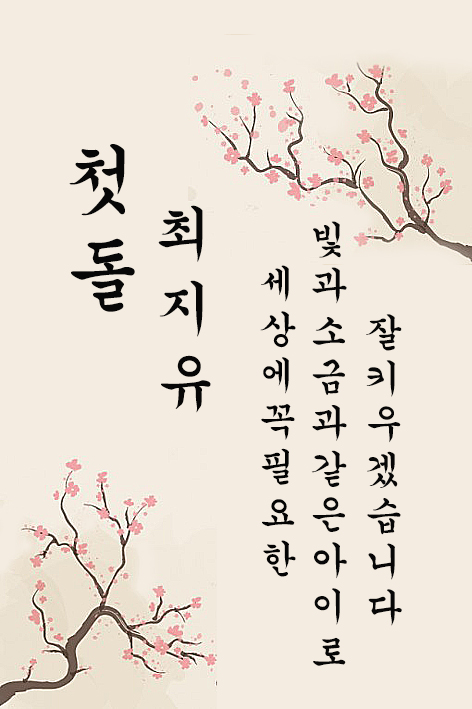 첫돌
최지유
세상에꼭필요한
빛과소금과같은아이로
잘키우겠습니다